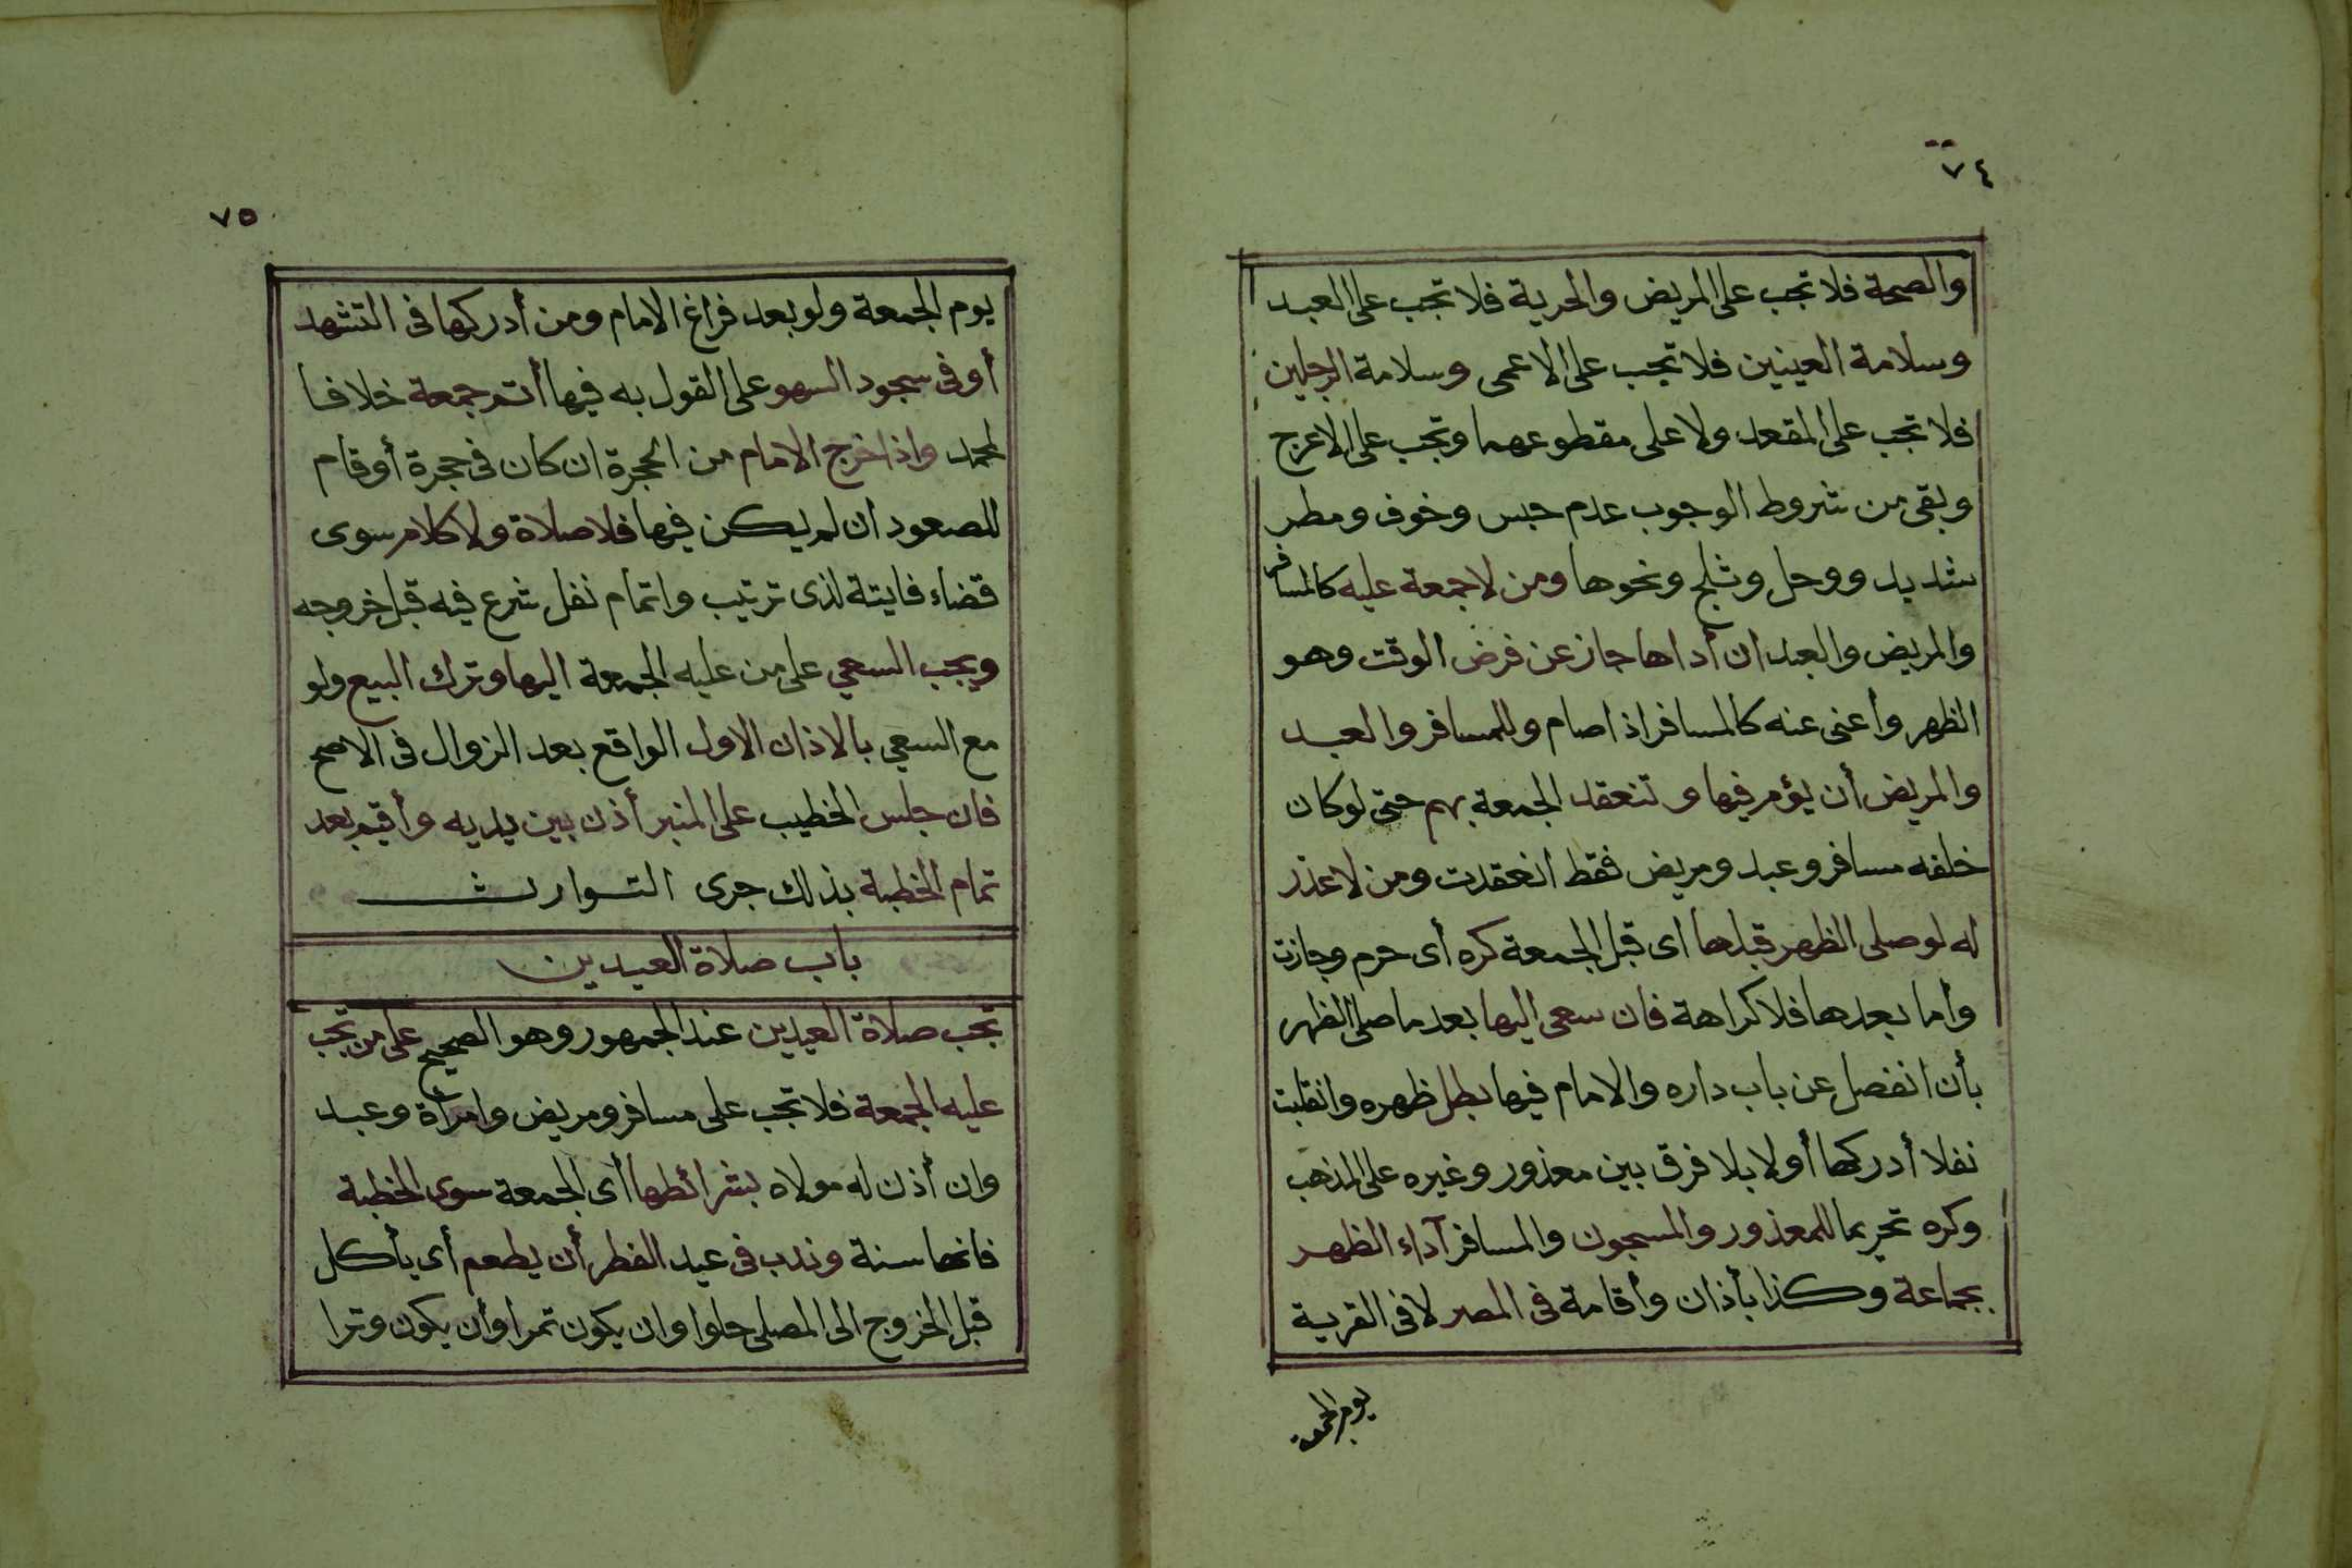 ٧٤
والصحة فلا تجب على المريض والحرية فلا تجب على العبد
وسلامة العينين فلا تجب على الاعمى وسلامة الرجلين
فلا تجب على المقعد ولا على مقطوعهما وتجب على الاعرج
وبقى من شروط الوجوب عدم حبس وخوف ومطر
شديد ووحل وثلج ونحوها ومن لا جمعة عليه كالمسافر
والمريض والعبد ان أداها جاز عن فرض الوقت وهو
الظهر وأغنى عنه كالمسافر اذا صام وللمسافر والعبد
والمريض أن يؤم فيها وتنعقد الجمعة بهم حتى لو كان
خلفه مسافر وعبد ومريض فقط انعقدت ومن لا عذر
له لو صلى الظهر قبلها اى قبل الجمعة كره أى حرم وجازت
وأما بعدها فلا كراهة فان سعى اليها بعد ما صلى الظهر
بأن انفصل عن باب داره والامام فيها بطل ظهره وانقلبت
نفلا أدركها أولا بلا فرق بين معذور وغيره على المذهب
وكره تحريما للمعذور والمسجون والمسافر آداء الظهر
بجماعة وكذا بأذان وأقامة فى المصر لا فى القرية
يوم الجمعة
٧٥
يوم الجمعة ولو بعد فراغ الامام ومن أدركها فى التشهد
أو فى سجود السهو على القول به فيها أتم جمعة خلافا
لمحمد واذا خرج الامام من الحجرة ان كان فى حجرة أو قام
للصعود ان لم يكن فيها فلا صلاة ولا كلام سوى
قضاء فايتة لذى ترتيب واتمام نفل شرع فيه قبل خروجه
ويجب السعي على من عليه الجمعة اليها وترك البيع ولو
مع السعي بالاذان الاول الواقع بعد الزوال فى الاصح
فان جلس الخطيب على المنبر أذن بين يديه وأقيم بعد
تمام الخطبة بذلك جرى التوارث
باب صلاة العيدين
تجب صلاة العيدين عند الجمهور وهو الصحيح على من تجب
عليه الجمعة فلا تجب على مسافر ومريض وامرأة وعبد
وان أذن له مولاه بشرائطها أى الجمعة سوى الخطبة
فانها سنة وندب فى عيد الفطر أن يطعم أى يأكل
قبل الخروج الى المصلى حلوا وان يكون تمرا وأن يكون وترا